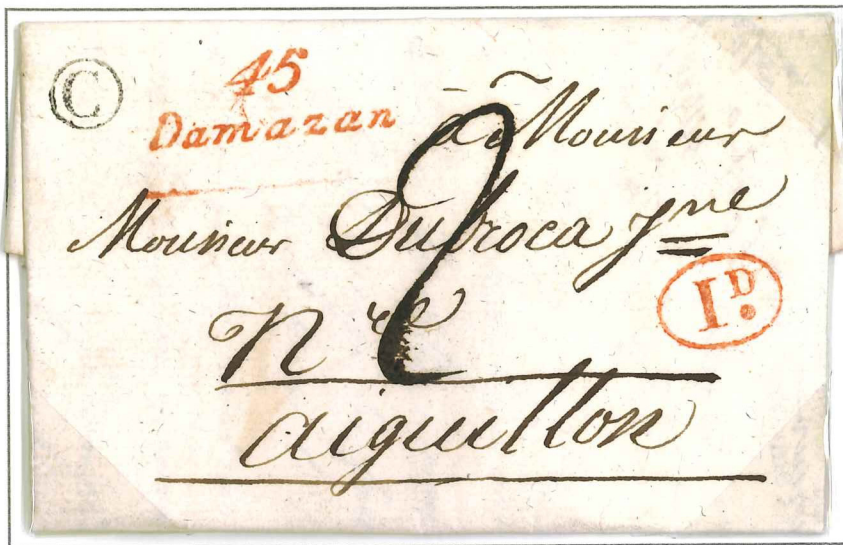 C
45
Damazan
à Monsieur
Monsieur Dubroca Jne
2
1D.
Nre
aiguillon